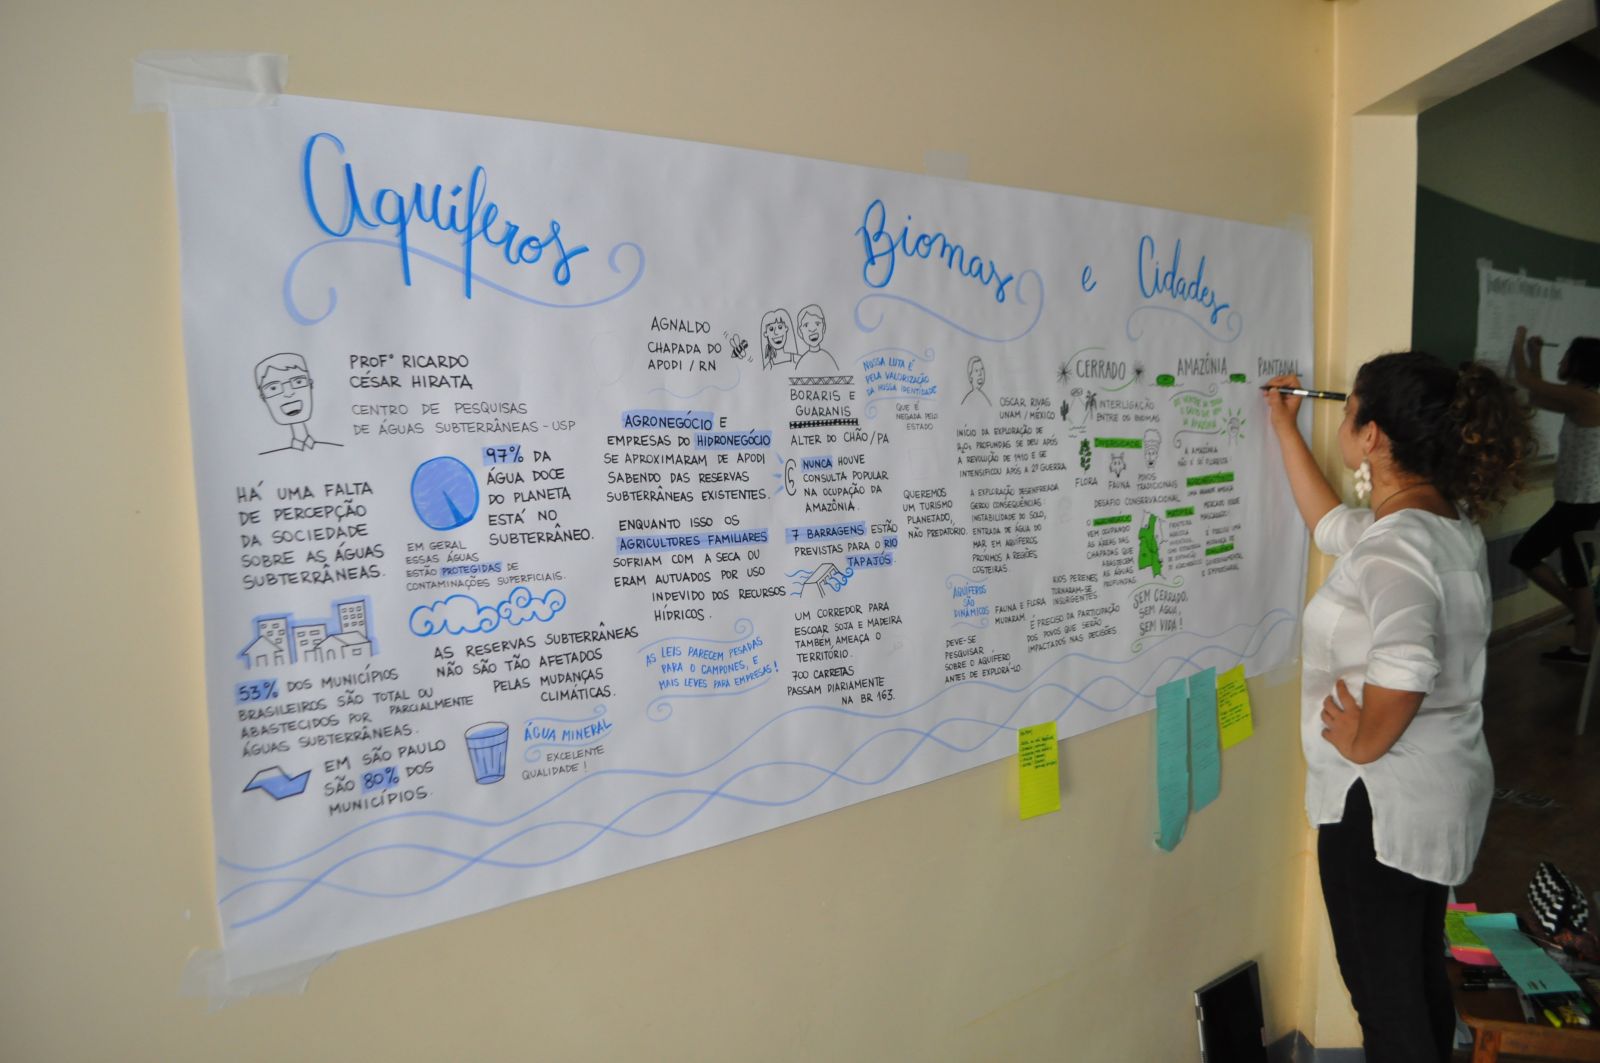 Aquíferos
Biomas e Cidades
PROFº RICARDO
CÉSAR HIRATA
CENTRO DE PESQUISAS
DE ÁGUAS SUBTERRÂNEAS - USP
HÁ UMA FALTA
DE PERCEPÇÃO
DA SOCIEDADE
SOBRE AS ÁGUAS
SUBTERRÂNEAS.
97% DA
ÁGUA DOCE
DO PLANETA
ESTÁ NO
SUBTERRÂNEO.
EM GERAL
ESSAS ÁGUAS
ESTÃO PROTEGIDAS DE
CONTAMINAÇÕES SUPERFICIAIS.
AS RESERVAS SUBTERRÂNEAS
NÃO SÃO TÃO AFETADOS
PELAS MUDANÇAS
CLIMÁTICAS.
53% DOS MUNICÍPIOS
BRASILEIROS SÃO TOTAL OU
PARCIALMENTE
ABASTECIDOS POR
ÁGUAS SUBTERRÂNEAS.
EM SÃO PAULO
SÃO 80% DOS
MUNICÍPIOS.
ÁGUA MINERAL
EXCELENTE
QUALIDADE!
AGNALDO
CHAPADA DO
APODI / RN
AGRONEGÓCIO E
EMPRESAS DO HIDRONEGÓCIO
SE APROXIMARAM DE APODI
SABENDO DAS RESERVAS
SUBTERRÂNEAS EXISTENTES.
ENQUANTO ISSO OS
AGRICULTORES FAMILIARES
SOFRIAM COM A SECA OU
ERAM AUTUADOS POR USO
INDEVIDO DOS RECURSOS
HÍDRICOS.
AS LEIS PARECEM PESADAS
PARA O CAMPONÊS, E
MAIS LEVES PARA EMPRESAS!
BORARIS E
GUARANIS
ALTER DO CHÃO/PA
NUNCA HOUVE
CONSULTA POPULAR
NA OCUPAÇÃO DA
AMAZÔNIA.
7 BARRAGENS ESTÃO
PREVISTAS PARA O RIO
TAPAJÓS
UM CORREDOR PARA
ESCOAR SOJA E MADEIRA
TAMBÉM AMEAÇA O
TERRITÓRIO.
700 CARRETAS
PASSAM DIARIAMENTE
NA BR 163.
NOSSA LUTA É
PELA VALORIZAÇÃO
DA NOSSA IDENTIDADE
QUE É
NEGADA PELO
ESTADO
QUEREMOS
UM TURISMO
PLANETADO,
NÃO PREDATÓRIO.
OSCAR RIVAS
UNAM / MÉXICO
INÍCIO DA EXPLORAÇÃO DE
PROFUNDAS SE DEU APÓS
A REVOLUÇÃO DE 1910 E SE
INTENSIFICOU APÓS A 2ª GUERRA.
A EXPLORAÇÃO DESENFREADA
GEROU CONSEQUÊNCIAS:
INSTABILIDADE DO SOLO,
ENTRADA DE ÁGUA DO
MAR EM AQUÍFEROS
PRÓXIMOS A REGIÕES
COSTEIRAS.
AQUÍFEROS
SÃO
DINÂMICOS
FAUNA E FLORA
MUDARAM
RIOS PERENES
TORNARAM-SE
INSURGENTES
DEVE-SE
PESQUISAR
SOBRE O AQUÍFERO
ANTES DE EXPLORÁ-LO
É PRECISO DA PARTICIPAÇÃO
DOS POVOS QUE SERÃO
IMPACTADOS NAS DECISÕES
CERRADO
INTERLIGAÇÃO
ENTRE OS BIOMAS
DIVERSIDADE
FLORA
FAUNA
POVOS
TRADICIONAIS
DESAFIO CONSERVACIONAL
O AGRONEGÓCIO
VEM OCUPANDO
AS ÁREAS DAS
CHAPADAS QUE
ABASTECEM
AS ÁGUAS
PROFUNDAS
MATOPIBA
SEM CERRADO,
SEM ÁGUA,
SEM VIDA!
AMAZÔNIA
A AMAZÔNIA
NÃO É SÓ FLORESTA
AGRONEGÓCIO
UMA GRANDE AMEAÇA
MERCADO VERDE
MASCARADO
É PRECISO UMA
MUDANÇA DE
GOVERNAMENTAL
E EMPRESARIAL
PANTANAL